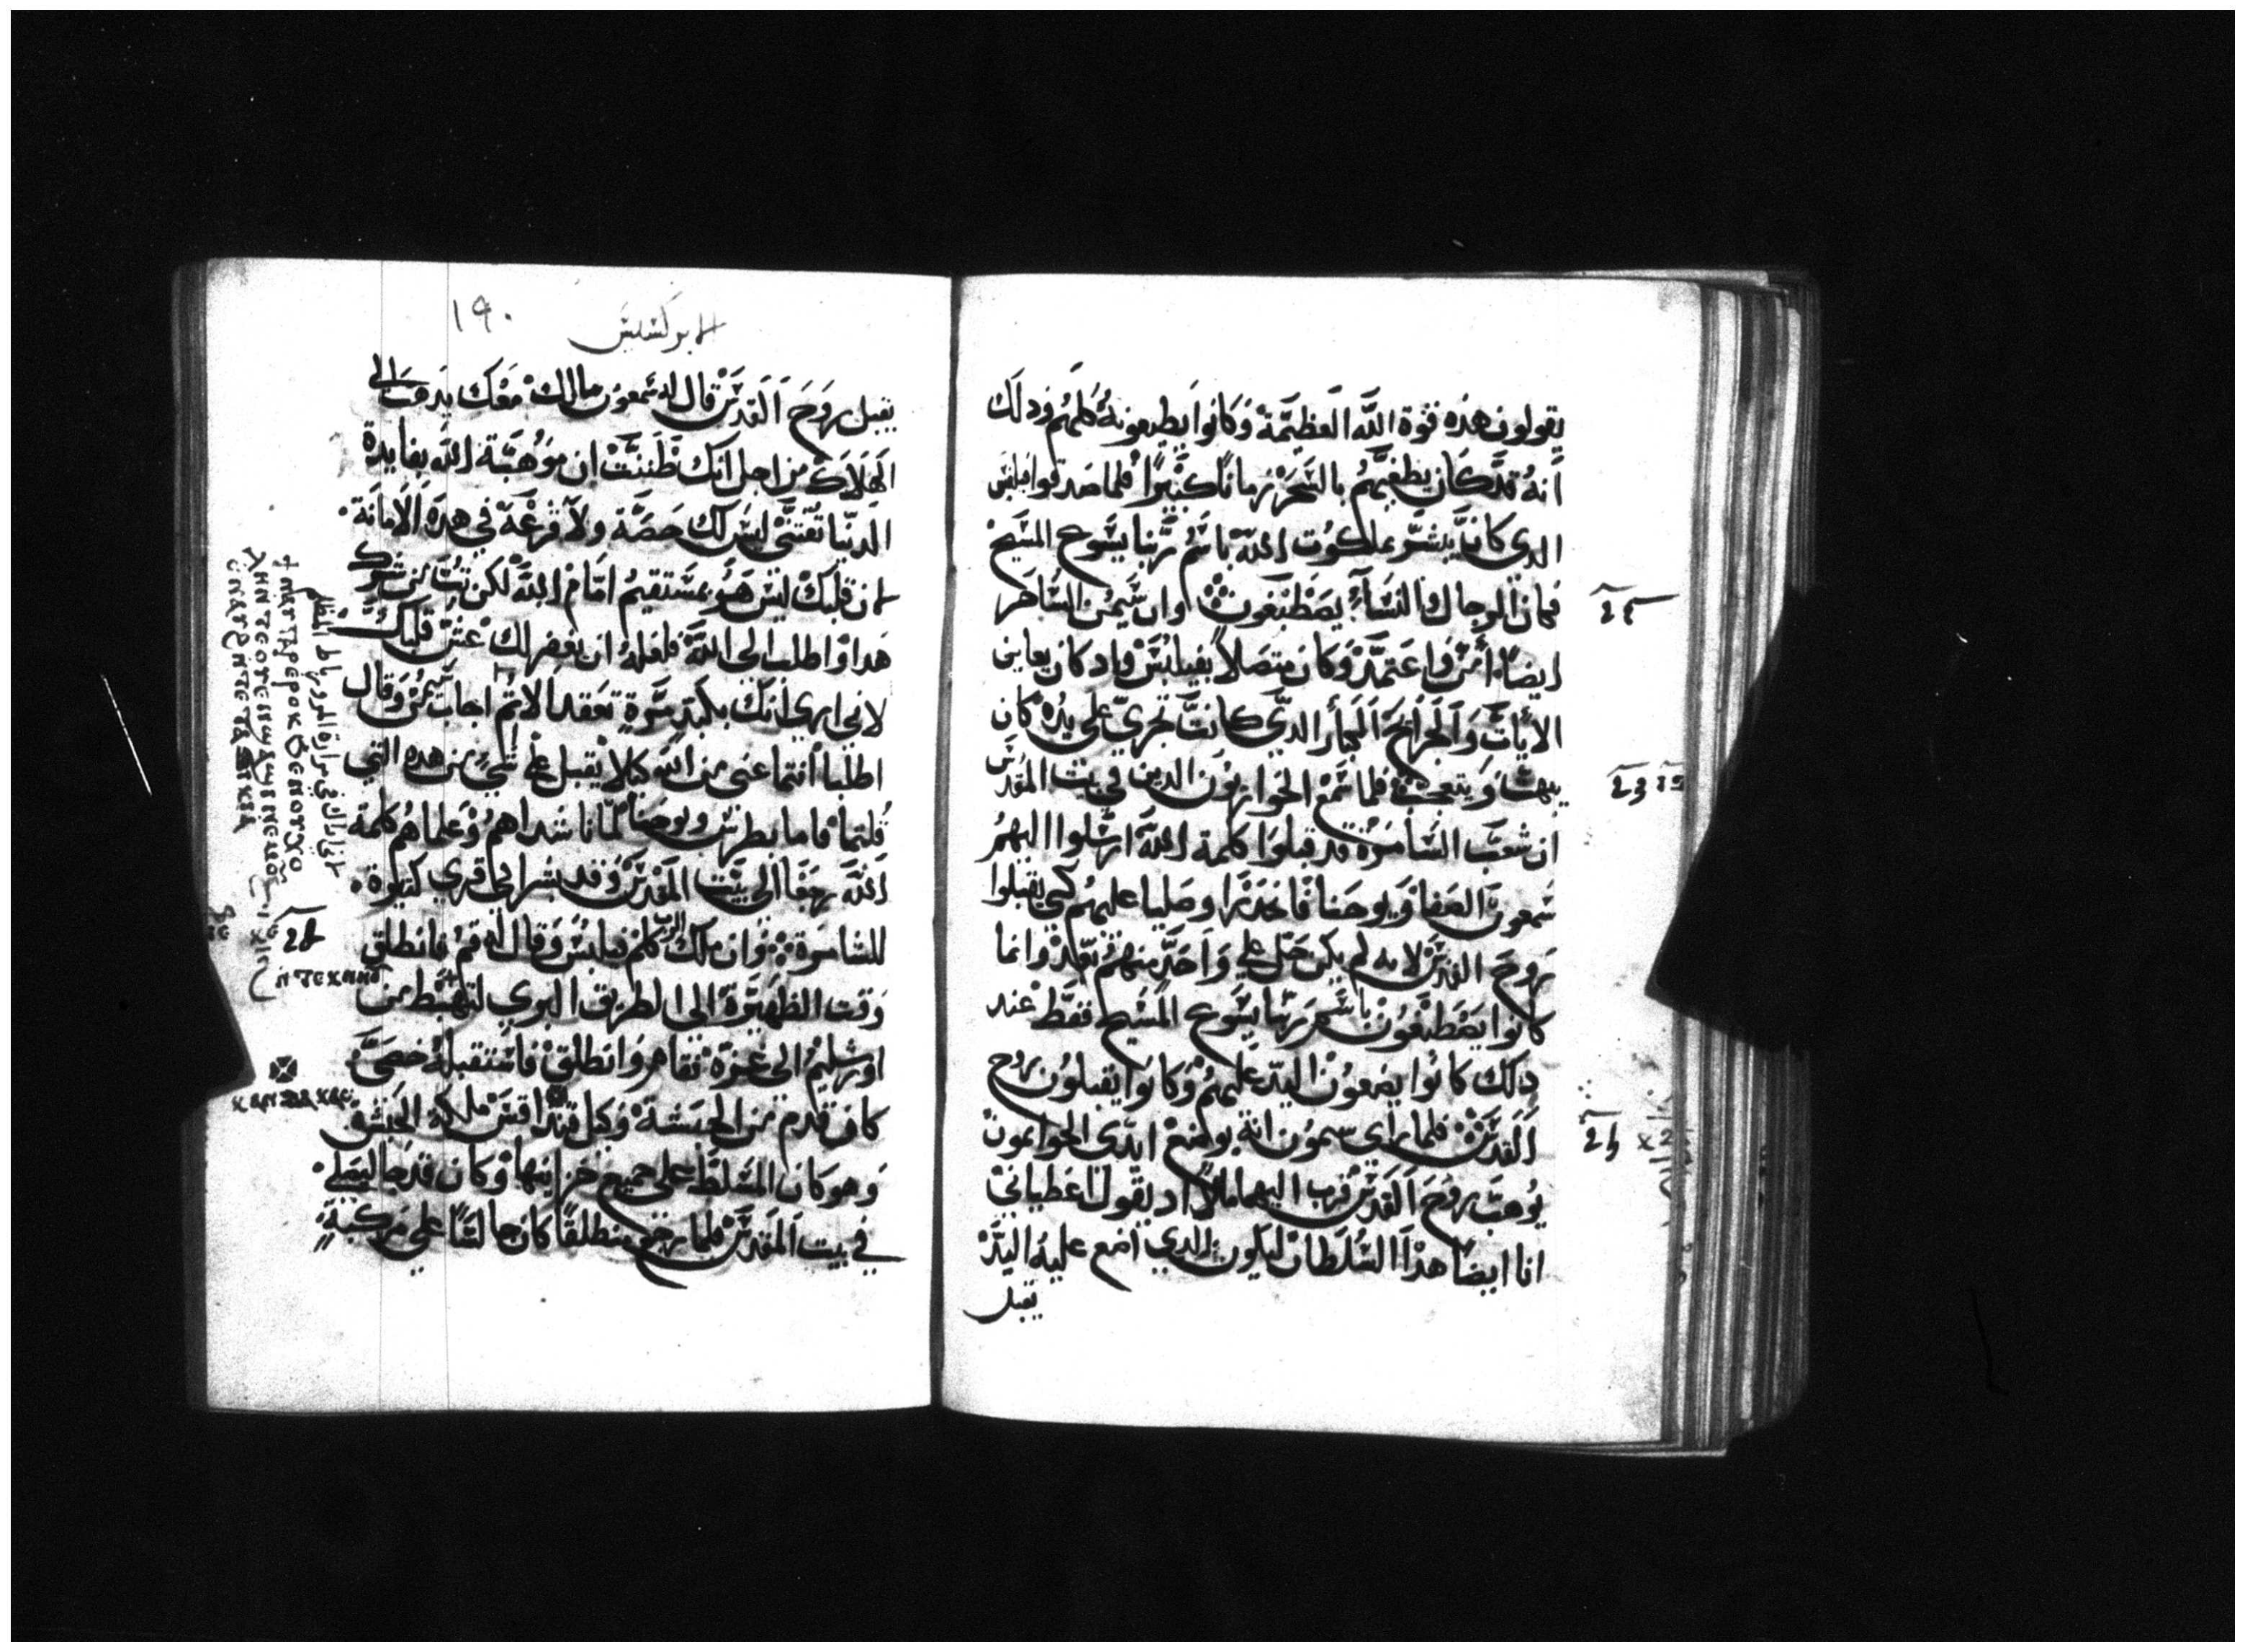 يقولون هذه قوة الله العظيمة وكانوا يطيعونه كلهم ودلك
أنه قد كان يطغيهم بالسحر زمانا كثيرا فلما صدقوا فيلبس
الدي كان يبشر بملكوت الله باسم ربنا يسوع المسيح
فكان الرجال والنساء يصطبغون وان سيمن الساحر
ايضا أمن واعتمد وكان متصلا بفيلبس واد كان يعاين
الأيات والجرايح الكبار الدي كانت تجري علي يده كان
يبهت ويتعجب فلما سمع الحواريون الدين في بيت المقدس
ان شعب السامرة قد قبلوا كلمة الله ارسلوا اليهم
شمعون الصفا ويوحنا فانحدرا وصليا عليهم كي يقبلوا
روح القدس لانه لم يكن حل علي واحد منهم بعد وانما
كانوا يصطبغون باسم ربنا يسوع المسيح فقط عند
دلك كانوا يضعون اليد عليهم وكانوا يقبلون روح
القدس فلما راي سيمون انه بوضع ايدي الحواريون
يوهب روح القدس قرب اليهما مالا اد يقول اعطياني
انا ايضا هدا السلطان ليكون الدي اضع عليه اليد
يقبل
١٩٠
الابركسيس
يقبل روح القدس قال له شمعون مالك معك يدهب الي
الهلاك من اجل انك ظننت ان موهبة الله بفايدة
الدنيا تقتني ليس لك حصة ولا قرعة في هده الامانة
لان قلبك ليس هو بمستقيم امام الله لكن تب من شرك
هدا واطلب الي الله فلعله ان يغفر لك غش قلبك
لاني اري انك بكبد مرة تعقد الاتم اجاب سيمن وقال
اطلبا انتما عني من الله كيلا يقبل علي شي من هده التي
قلتما فاما بطرس ويوحنا لما ناشداهم وعلماهم كلمة
الله رجعا الي بيت المقدس وقد بشرا في قري كثيرة
للسامرة وان ملك الرب كلم فيلبس وقال له قم فانطلق
وقت الظهيرة الي الطريق البري لتهبط من
اورشليم الي غزة فقام وانطلق فاستقبله خصي
كان قدم من الحبشة وكيل قنداقس ملكة الحبشة
وهو كان المسلط علي جميع خزاينها وكان قد جا ليصلي
في بيت المقدس فلما رجع منطلقا كان جالسا علي مركبة